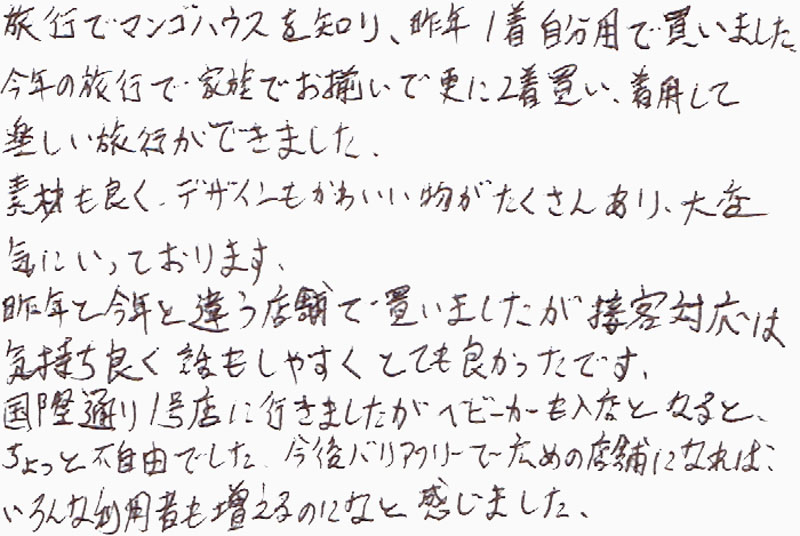 旅行でマンゴハウスを知り、昨年1着自分用で買いました。
今年の旅行で家族でお揃いで更に2着買い、着用して
楽しい旅行ができました。
素材も良く、デザインもかわいい物がたくさんあり、大変
気にいっております。
昨年と今年と違う店舗で買いましたが接客対応は
気持ち良く話もしやすくとても良かったです。
国際通り1号店に行きましたがベビーカーも入店となると、
ちょっと不自由でした。今後バリアフリーで広めの店舗になれば、
いろんな利用者も増えるのになと感じました。